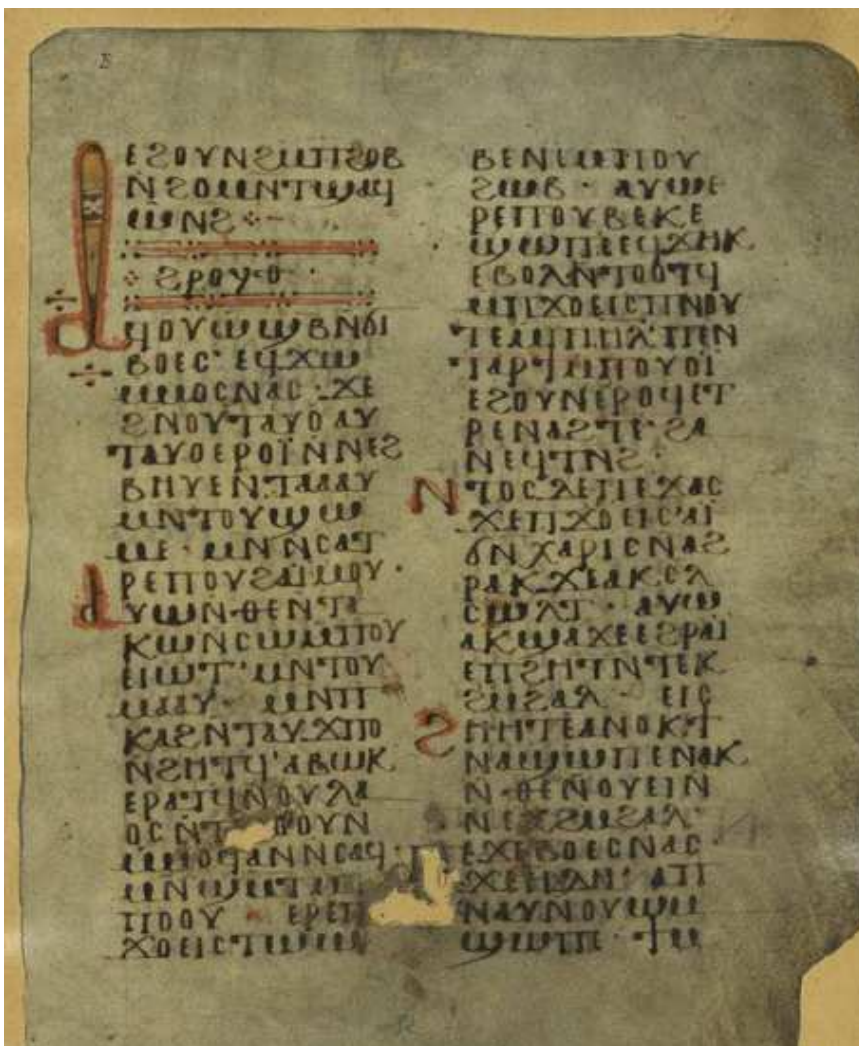 ⲉϩⲟⲩⲛϩⲙⲡϩⲟⲃ
ⲛ̄ϩⲟⲙⲛⲧϣⲁϥ
ⲙⲛϩ ⁘–
⁘ ϩⲣⲟⲩⲟ ·
ⲁϥⲟⲩⲱϣⲃⲛϭⲓ
ⲃⲟⲉⲥ· ⲉϥϫⲱ
ⲙⲙⲟⲥⲛⲁⲥ · ϫⲉ
ϩⲛⲟⲩⲧⲁⲩⲟⲁⲩ
ⲧⲁⲩⲟⲉⲣⲟⲓ̈ⲛⲛⲉϩ
ⲃⲏⲩⲉⲛⲧⲁⲁⲁⲩ
ⲙⲛⲧⲟⲩϣⲱ
ⲙⲉ · ⲙⲛⲛⲥⲁⲧ
ⲣⲉⲡⲟⲩϩⲁⲓ̈ⲙⲟⲩ ·
ⲁⲩⲱⲛ·ⲑⲉⲛⲧⲁ
ⲕⲱⲛⲥⲱⲙⲡⲟⲩ
ⲉⲓⲱⲧ· ⲙⲛⲧⲟⲩ
ⲙⲁⲁⲩ · ⲙⲛⲡ
ⲕⲁϩⲛⲧⲁⲩϫⲡⲟ
ⲛϩⲏⲧϥ· ⲁⲃⲱⲕ
ⲉⲣⲁⲧϥⲛⲟⲩⲗⲁ
ⲟⲥ ⲛⲧ ⲟⲟⲩⲛ
ⲙⲙⲟϥⲁⲛⲛⲥⲁϥ ·
ⲙⲛϣⲙⲧ
ⲡⲟⲟⲩ · ⲉⲣⲉⲡ
ϫⲟⲉⲓⲥⲧⲱⲱ
ⲃⲉⲛⲙⲡⲟⲩ
ϩⲱⲃ · ⲁⲩⲱⲉ
ⲣⲉⲡⲟⲩⲃⲉⲕⲉ
ϣⲱⲡⲉⲉϥϫⲏⲕ
ⲉⲃⲟⲗⲛⲧⲟⲟⲧϥ
ⲙⲡϫⲟⲉⲓⲥⲡⲛⲟⲩ
ⲧⲉⲙⲡⲓⲏⲗ̄ⲡⲉⲛ
ⲧⲁⲣϯⲙⲡⲟⲩⲟⲓ̈
ⲉϩⲟⲩⲛⲉⲣⲟϥⲉⲧ
ⲣⲉⲛⲁϩⲧⲉ· ϩⲁ
ⲛⲉϥⲧⲛϩ ·
ⲛⲧⲟⲥⲇⲉⲡⲉϫⲁⲥ
ϫⲉⲡϫⲟⲉⲓⲥ·ⲁⲓ̈
ϭⲛⲭⲁⲣⲓⲥⲛⲁϩ
ⲣⲁⲕ·ϫⲉⲁⲕⲥⲗ
ⲥⲱⲗⲧ · ⲁⲩⲱ
ⲁⲕϣⲁϫⲉⲉϩⲣⲁⲓ̈
ⲉⲡϩⲏⲧⲛⲧⲉⲕ
ϩⲙϩⲁⲗ · ⲉⲓⲥ
ϩⲏⲏⲧⲉⲁⲛⲟⲕϯ
ⲛⲁϣⲱⲡⲉⲛⲁⲕ
ⲛ·ⲑⲉⲛⲟⲩⲉⲓⲛ
ⲛⲉⲕϩⲙϩⲁⲗ ·
ⲡⲉϫⲉⲃⲟⲉⲥⲛⲁⲥ·
ϫⲉⲏⲇⲏ· ⲁⲡ
ⲛⲁⲩⲛⲟⲩⲱⲙ
ϣⲱⲡⲉ · ϯⲙ